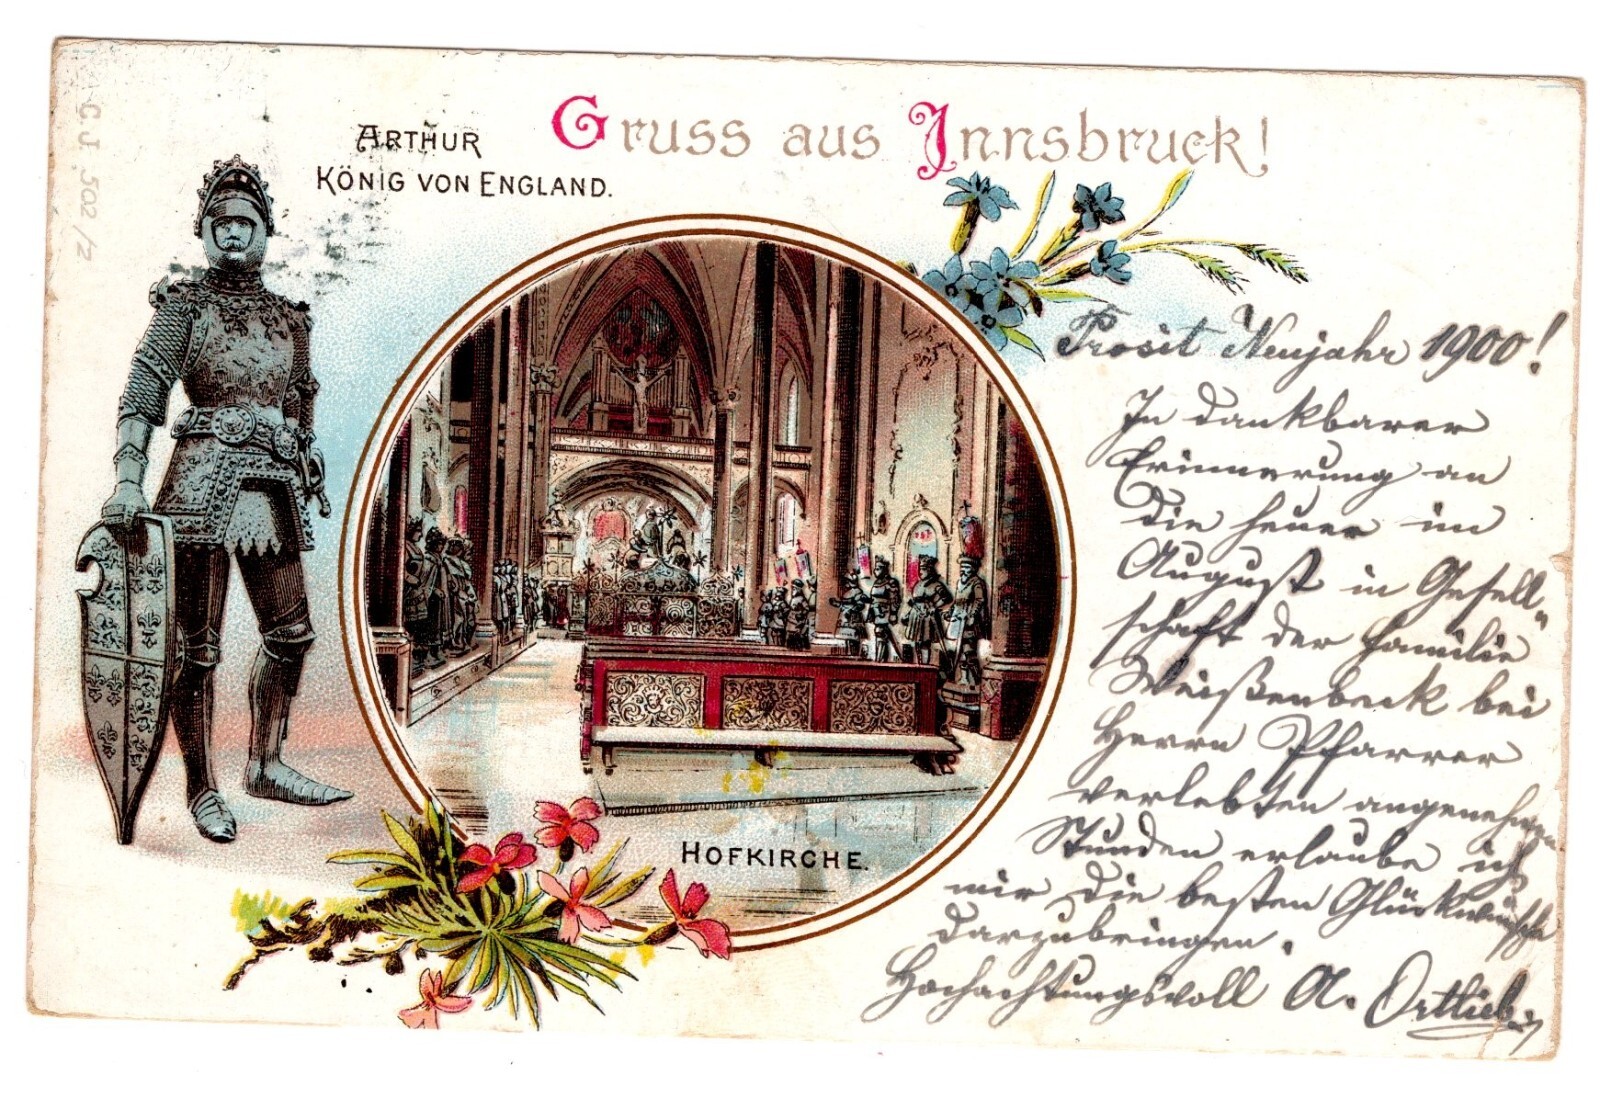 C J. 502/2
ARTHUR
KÖNIG VON ENGLAND.
Gruss aus Innsbruck!
HOFKIRCHE.
Prosit Neujahr 1900!
In dankbarer
Erinnerung an
die heuer im
August in Gesell„
schaft der Familie
Weißenbeck bei
Herrn Pfarrer
verlebten angenehmen
Stunden erlaube ich
mir die besten Glückwünsche
darzubringen.
Hochachtungsvoll A. Ortlieb